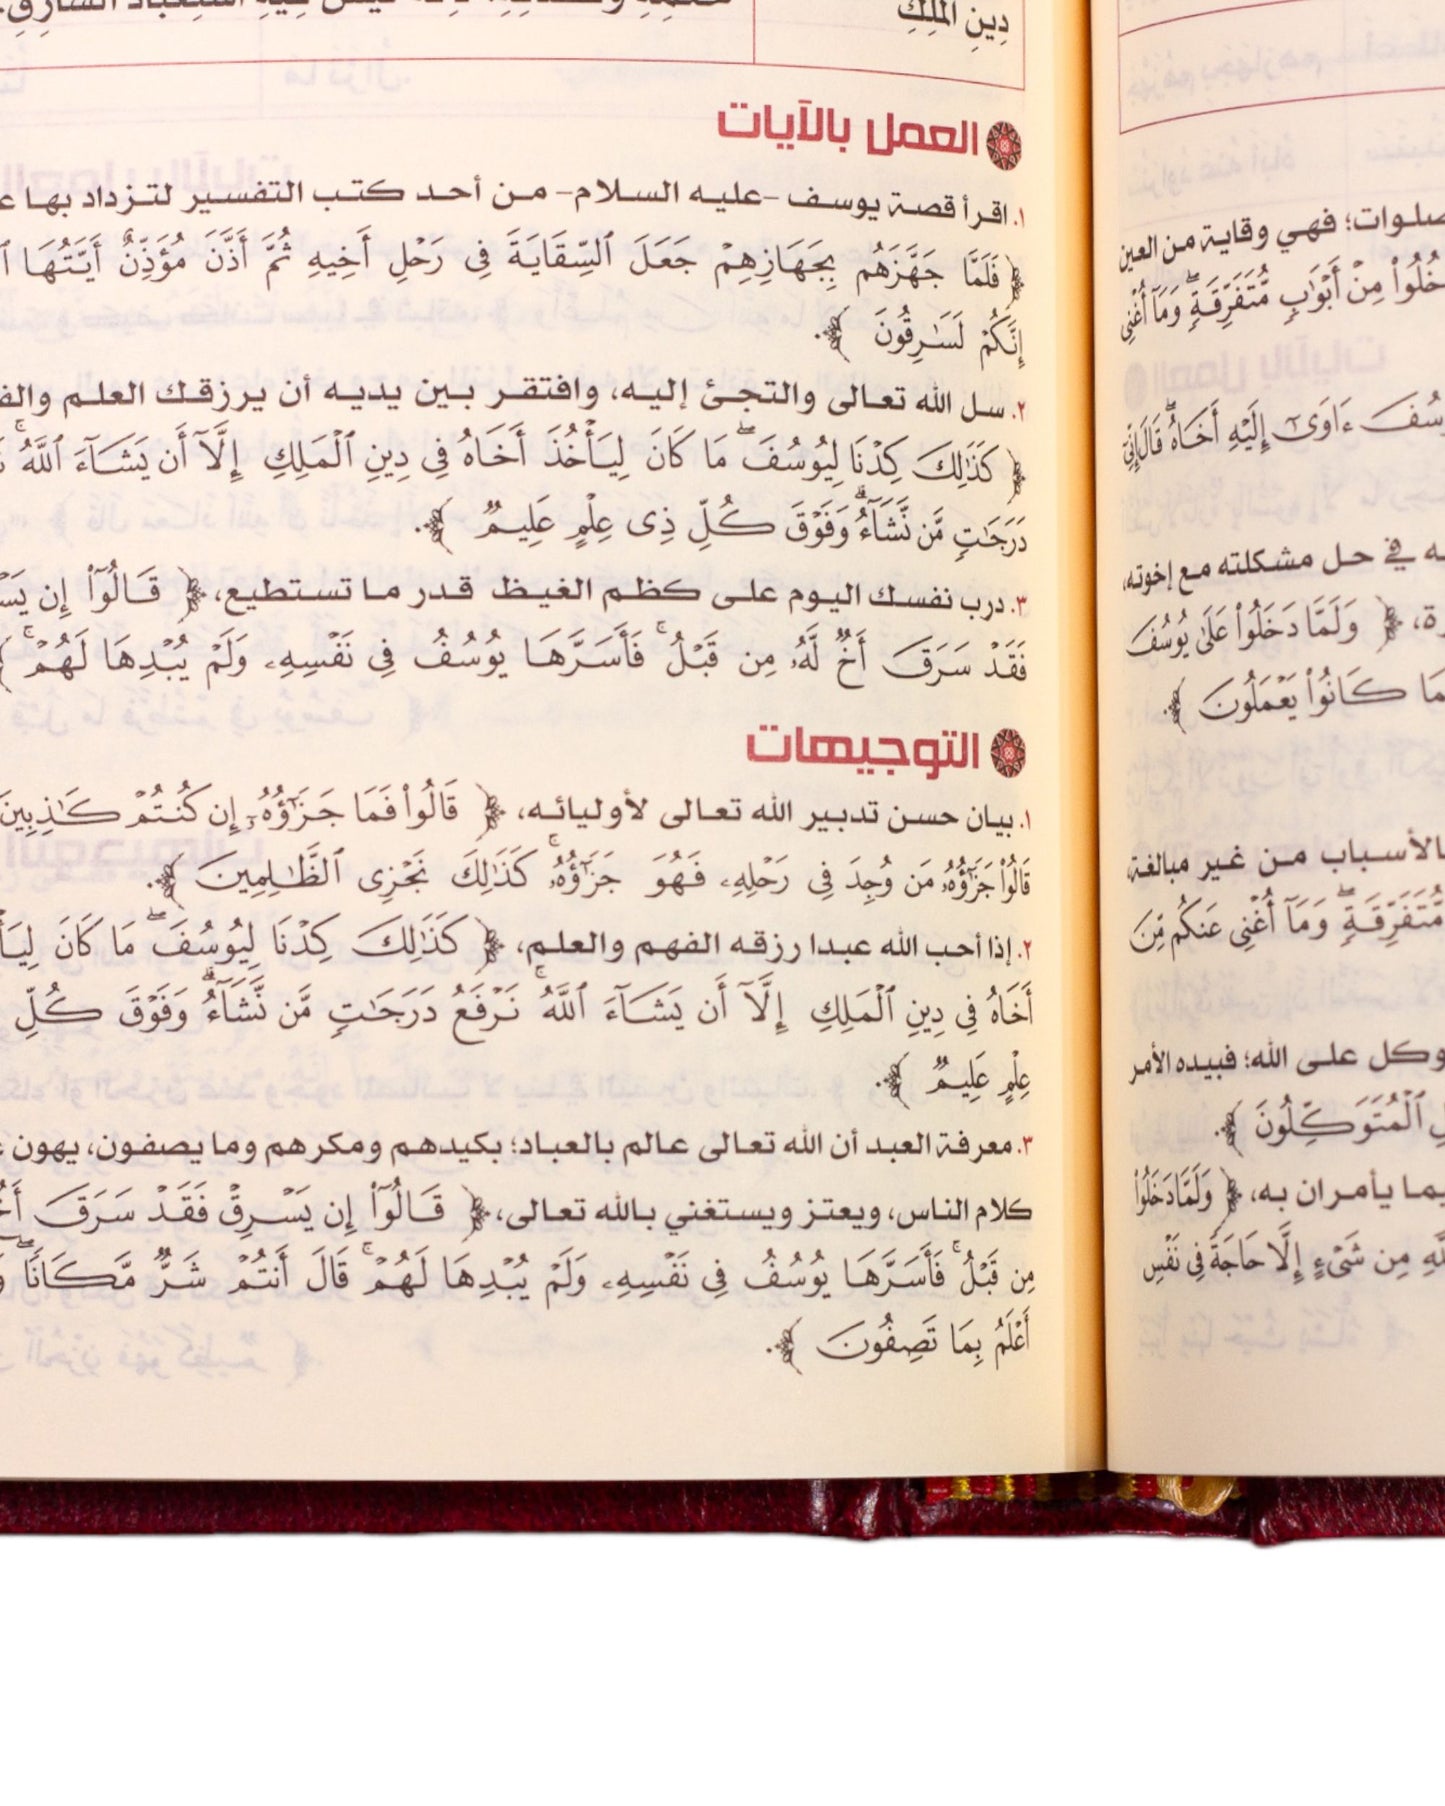 دِينِ الْمَلِكِ
العمل بالآيات
١. اقرأ قصة يوسف -عليه السلام- من أحد كتب التفسير لتزداد بها
﴿ فَلَمَّا جَهَّزَهُم بِجَهَازِهِمْ جَعَلَ ٱلسِّقَايَةَ فِى رَحْلِ أَخِيهِ ثُمَّ أَذَّنَ مُؤَذِّنٌ أَيَّتُهَا
إِنَّكُمْ لَسَٰرِقُونَ ﴾.
٢. سل الله تعالى والتجئ إليه، وافتقر بين يديه أن يرزقك العلم
﴿ كَذَٰلِكَ كِدْنَا لِيُوسُفَ ۖ مَا كَانَ لِيَأْخُذَ أَخَاهُ فِى دِينِ ٱلْمَلِكِ إِلَّآ أَن يَشَآءَ ٱللَّهُ ۚ
دَرَجَٰتٍ مَّن نَّشَآءُ ۗ وَفَوْقَ كُلِّ ذِى عِلْمٍ عَلِيمٌ ﴾.
٣. درب نفسك اليوم على كظم الغيظ قدر ما تستطيع، ﴿ قَالُوٓا۟ إِن
فَقَدْ سَرَقَ أَخٌ لَّهُۥ مِن قَبْلُ ۚ فَأَسَرَّهَا يُوسُفُ فِى نَفْسِهِۦ وَلَمْ يُبْدِهَا لَهُمْ ۚ ﴾
التوجيهات
١. بيان حسن تدبير الله تعالى لأوليائه، ﴿ قَالُوا۟ فَمَا جَزَٰٓؤُهُۥٓ إِن كُنتُمْ كَٰذِبِينَ
قَالُوا۟ جَزَٰٓؤُهُۥ مَن وُجِدَ فِى رَحْلِهِۦ فَهُوَ جَزَٰٓؤُهُۥ ۚ كَذَٰلِكَ نَجْزِى ٱلظَّٰلِمِينَ ﴾.
٢. إذا أحب الله عبدا رزقه الفهم والعلم، ﴿ كَذَٰلِكَ كِدْنَا لِيُوسُفَ ۖ مَا كَانَ
أَخَاهُ فِى دِينِ ٱلْمَلِكِ إِلَّآ أَن يَشَآءَ ٱللَّهُ ۚ نَرْفَعُ دَرَجَٰتٍ مَّن نَّشَآءُ ۗ وَفَوْقَ كُلِّ
عِلْمٍ عَلِيمٌ ﴾.
٣. معرفة العبد أن الله تعالى عالم بالعباد؛ بكيدهم ومكرهم وما يصفون، يهون
كلام الناس، ويعتز ويستغني بالله تعالى، ﴿ قَالُوٓا۟ إِن يَسْرِقْ فَقَدْ سَرَقَ
مِن قَبْلُ ۚ فَأَسَرَّهَا يُوسُفُ فِى نَفْسِهِۦ وَلَمْ يُبْدِهَا لَهُمْ ۚ قَالَ أَنتُمْ شَرٌّ مَّكَانًا ۖ
أَعْلَمُ بِمَا تَصِفُونَ ﴾.
فهي وقاية من العين
مِنْ أَبْوَٰبٍ مُّتَفَرِّقَةٍ ۖ وَمَآ أُغْنِى
ءَاوَىٰٓ إِلَيْهِ أَخَاهُ ۖ قَالَ إِنِّىٓ
في حل مشكلته مع إخوته،
﴿ وَلَمَّا دَخَلُوا۟ عَلَىٰ يُوسُفَ
كَانُوا۟ يَعْمَلُونَ ﴾.
من غير مبالغة
مُّتَفَرِّقَةٍ ۖ وَمَآ أُغْنِى عَنكُم مِّنَ
على الله؛ فبيده الأمر
ٱلْمُتَوَكِّلُونَ ﴾.
يأمران به، ﴿ وَلَمَّا دَخَلُوا۟
مِن شَىْءٍ إِلَّا حَاجَةً فِى نَفْسِ